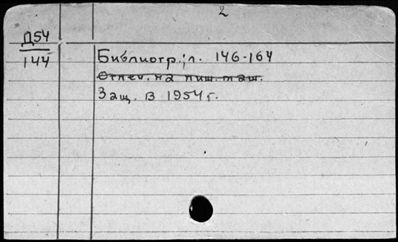 2
Д54
144
Библиогр.: л. 146-164
Отпеч. на пиш. маш.
Защ. в 1954 г.